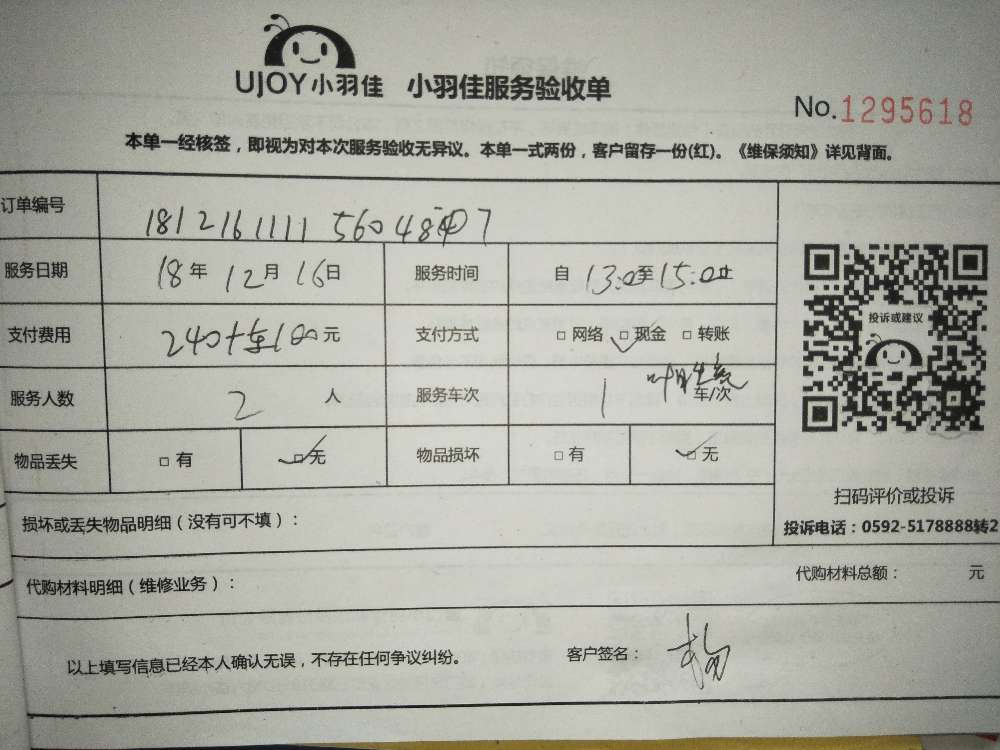 UJOY小羽佳 小羽佳服务验收单
No.1295618
本单一经核签，即视为对本次服务验收无异议。本单一式两份，客户留存一份(红)。《维保须知》详见背面。
订单编号 1812161111 56048
服务日期 18年12月16日 服务时间 自13:0至15:0止
支付费用 240+车100元 支付方式 □网络 □现金 □转账
服务人数 2人 服务车次 1 车/次
物品丢失 □有 □无 物品损坏 □有 □无
投诉或建议
扫码评价或投诉
投诉电话：0592-5178888转2
损坏或丢失物品明细（没有可不填）：
代购材料明细（维修业务）： 代购材料总额： 元
以上填写信息已经本人确认无误，不存在任何争议纠纷。 客户签名：杨